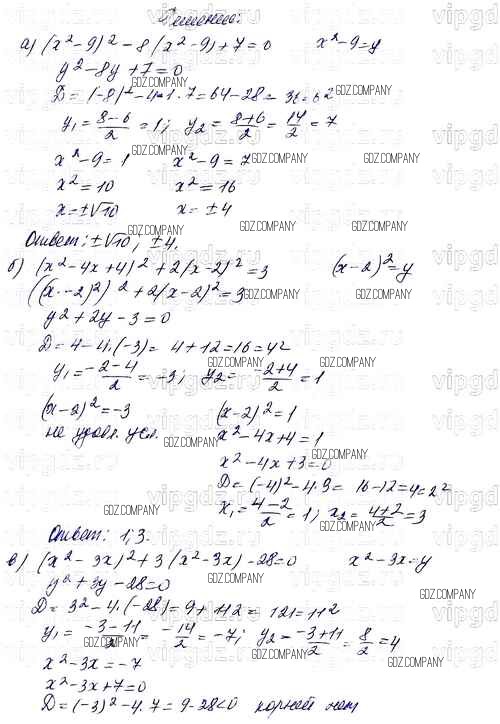 Решение:
а) (x²-9)²-8(x²-9)+7=0 x²-9=y
y²-8y+7=0
D=(-8)²-4·1·7=64-28=36=6²
y₁=(8-6)/2=1; y₂=(8+6)/2=14/2=7
x²-9=1 x²-9=7
x²=10 x²=16
x=±√10 x=±4
Ответ: ±√10; ±4.
б) (x²-4x+4)²+2(x-2)²=3 (x-2)²=y
((x-2)²)²+2(x-2)²=3
y²+2y-3=0
D=4-4·(-3)=4+12=16=4²
y₁=(-2-4)/2=-3; y₂=(-2+4)/2=1
(x-2)²=-3 (x-2)²=1
не удовл. усл. x²-4x+4=1
x²-4x+3=0
D=(-4)²-4·3=16-12=4=2²
x₁=(4-2)/2=1; x₂=(4+2)/2=3
Ответ: 1;3.
в) (x²-3x)²+3(x²-3x)-28=0 x²-3x=y
y²+3y-28=0
D=3²-4·(-28)=9+112=121=11²
y₁=(-3-11)/2=-14/2=-7; y₂=(-3+11)/2=8/2=4
x²-3x=-7
x²-3x+7=0
D=(-3)²-4·7=9-28<0 корней нет